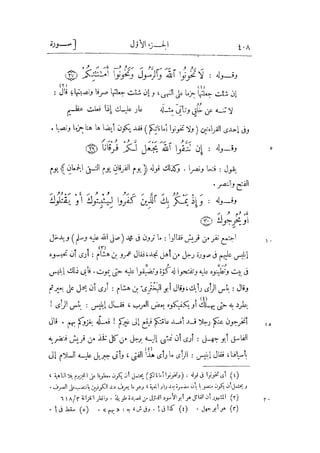 ٤٠٨ الجزء الأول [ سورة
وقوله : لَا تَخُونُوا۟ ٱللَّهَ وَٱلرَّسُولَ وَتَخُونُوٓا۟ أَمَـٰنَـٰتِكُمْ ﴿٢٧﴾
إن شئت جعلتها جزما على النهى، و إن شئت جعلتها صرفا ونصبتها؛ قال :
لا تنه عن خُلُق وتأتىَ مثله عار عليك إذا فعلت عظيم
وفى إحدى القراءتين (ولا تخونوا أماناتكم) فقد يكون أيضا هاهنا جزما ونصبا .
٥ وقوله : إِن تَتَّقُوا۟ ٱللَّهَ يَجْعَل لَّكُمْ فُرْقَانًا ﴿٢٩﴾
يقول : فتحا ونصرا . وكذلك قوله (يوم الفرقان يوم التقى الجمعان) يوم
الفتح والنصر .
وقوله : وَإِذْ يَمْكُرُ بِكَ ٱلَّذِينَ كَفَرُوا۟ لِيُثْبِتُوكَ أَوْ يَقْتُلُوكَ
أَوْ يُخْرِجُوكَ ﴿٣٠﴾
١٠ اجتمع نفر من قريش فقالوا : ما ترون فى محمد (صلى الله عليه وسلم) ويدخل
إبليس عليهم فى صورة رجل من أهل نجد، فقال عمرو بن هشام : أرى أن تحبسوه
فى بيت وتطينوه عليه وتفتحوا له كوّة وتضيقوا عليه حتى يموت. فأبى ذلك إبليس
وقال : بئس الرأى رأيك، وقال أبو البخترى بن هشام : أرى أن يحمل على بعير ثم
يطرد به حتى يهلك أو يكفيكموه بعض العرب ؛ فقال إبليس : بئس الرأى !
١٥ أتخرجون عنكم رجلا قد أفسد عامتكم فيقع إلى غيركم ! فعلّه يغزوكم بهم . قال
الفاسق أبو جهل : أرى أن نمشى إليه برجل من كل فخذ من قريش فنضربه
بأسيافنا، فقال إبليس : الرأى ما رأى هذا الفتى ، وأتى جبريل عليه السلام إلى
(١) أى تخونوا فى قوله : (وتخونوا أماناتكم) يحتمل أن يكون معطوفا على المجزوم بلا الناهية ،
ويحتمل أن يكون منصوبا بأن مضمرة بعد واو المعية ؛ وهو ما يعرف عند الكوفيين بالنصب على الصرف .
٢٠ (٢) المشهور أن القائل هو أبو الأسود الدؤلى من قصيدة طويلة . وانظر الخزانة ٦١٨/٣
(٣) هو أبو جهل . (٤) كذا فى ا . وفى ش، ج : «بهم» . (٥) سقط فى ا .